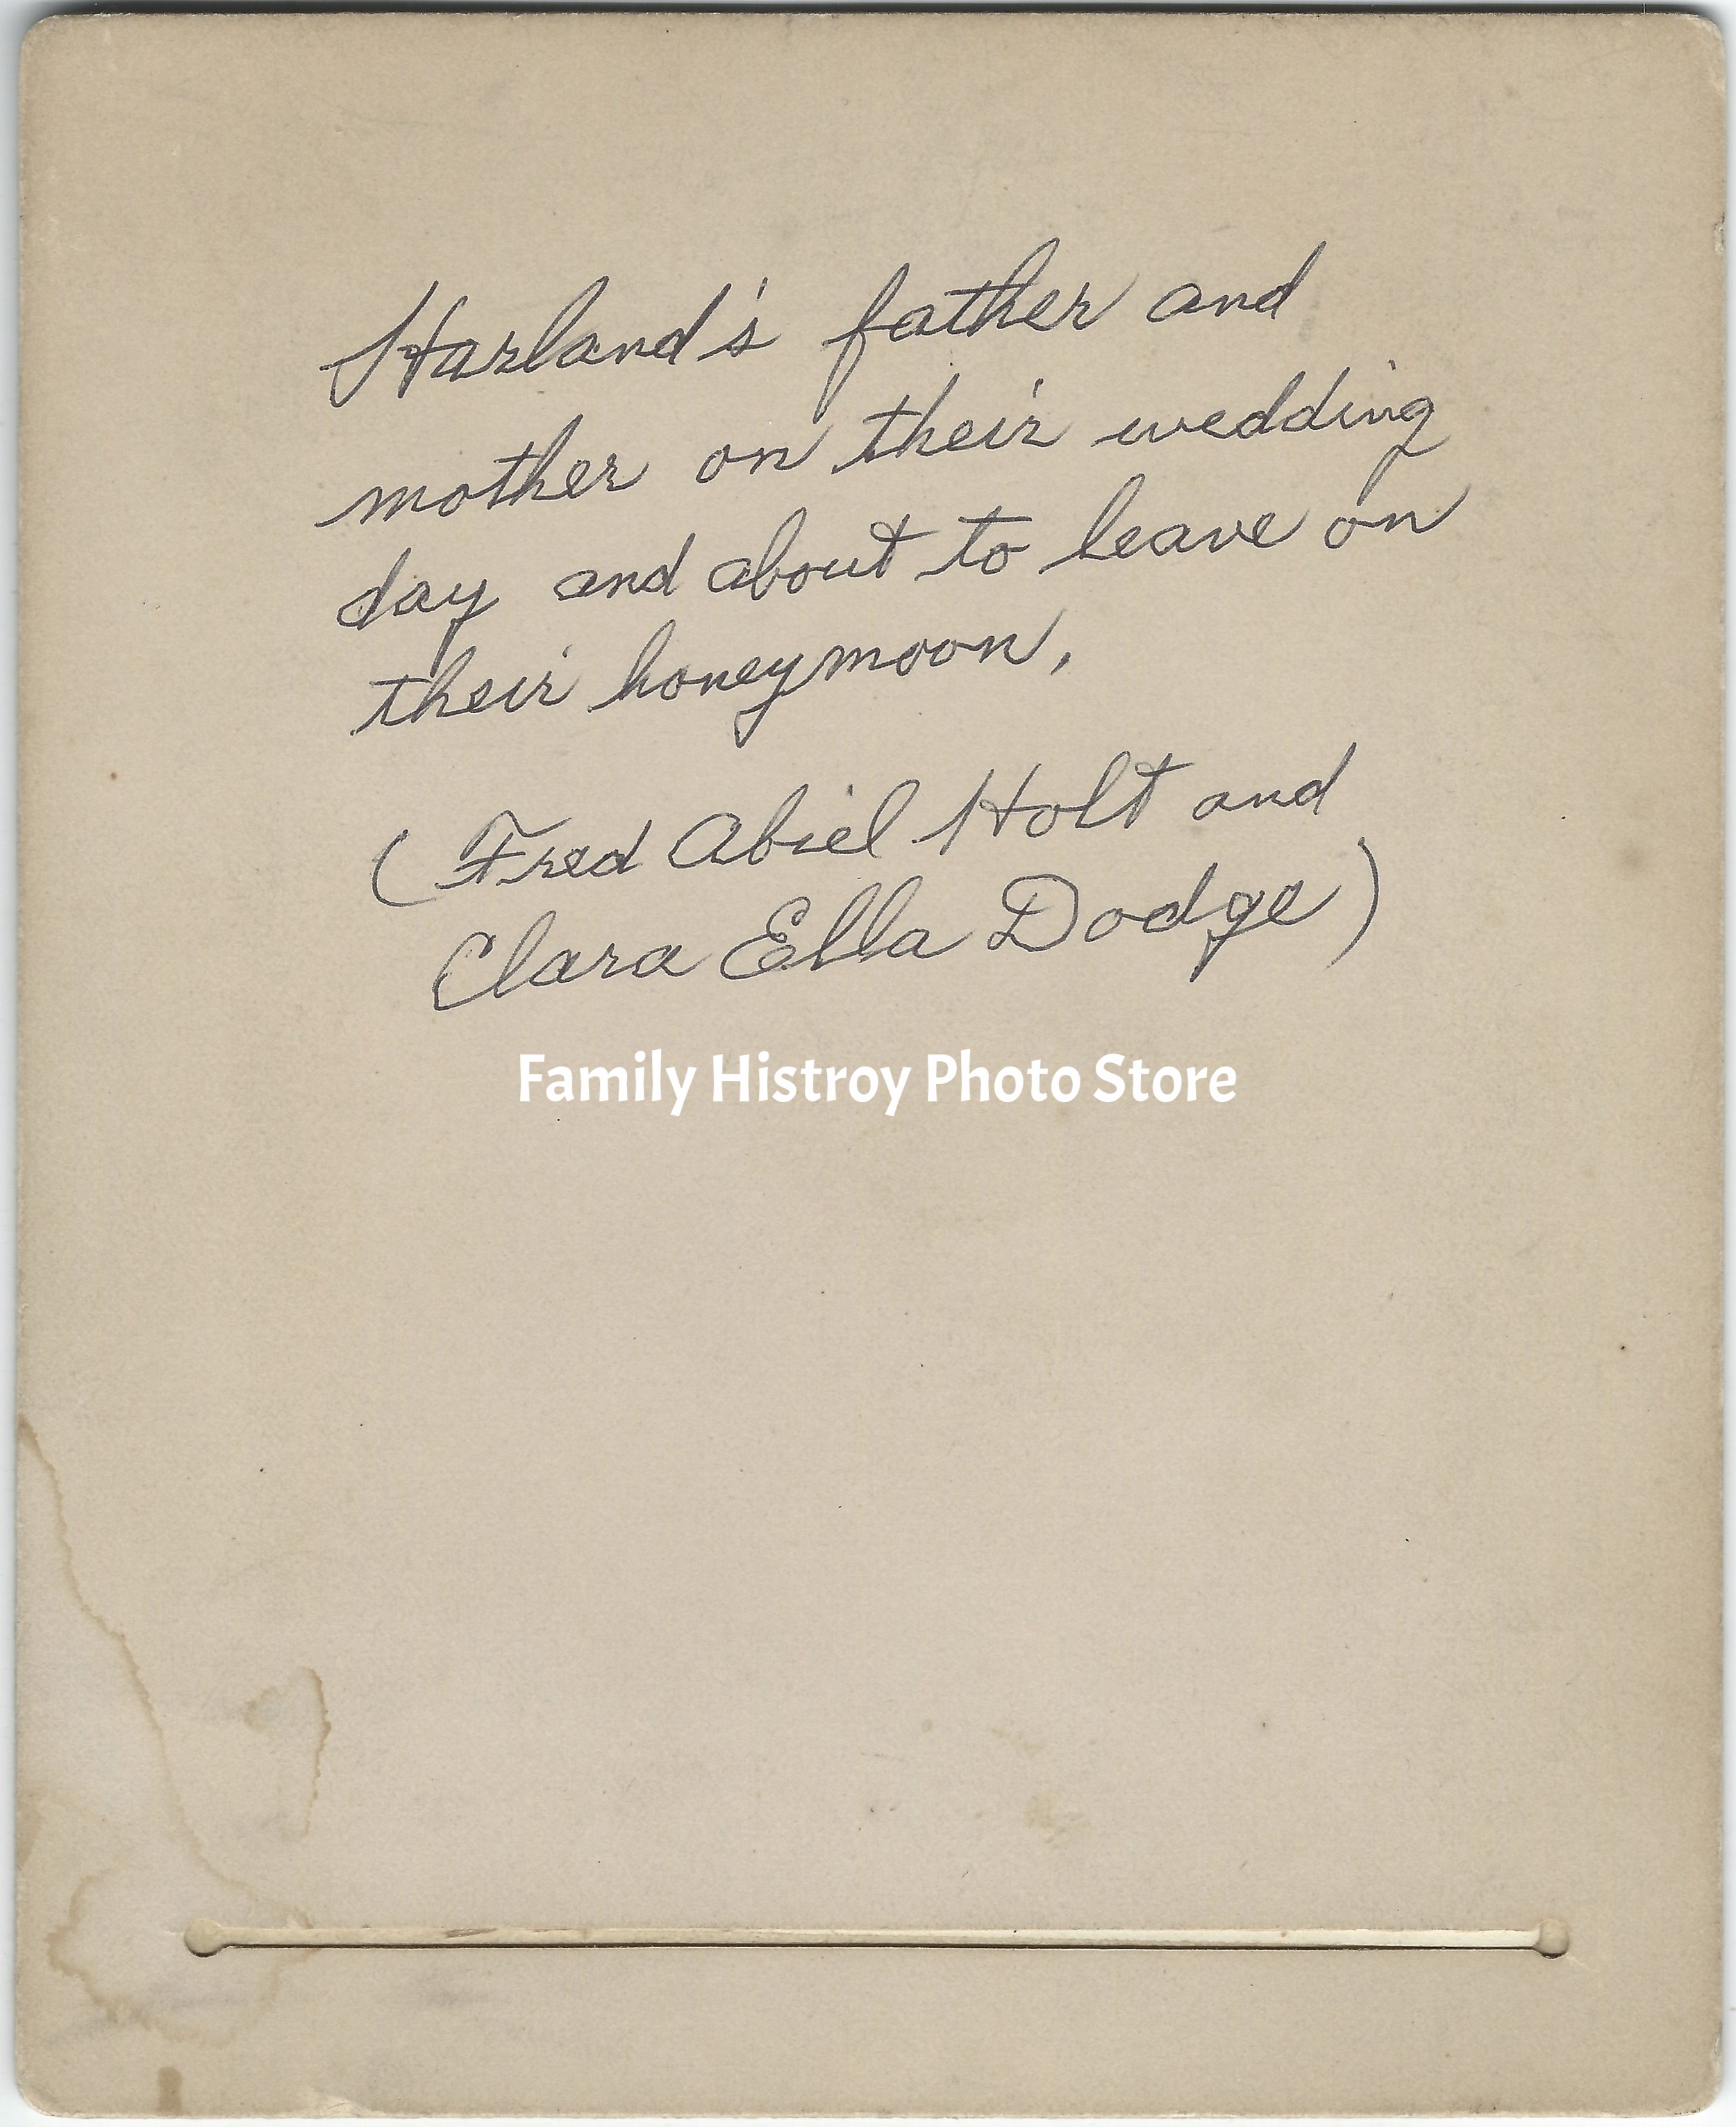 Harland's father and
mother on their wedding
day and about to leave on
their honeymoon.
(Fred Abiel Holt and
Clara Ella Dodge)
Family Histroy Photo Store